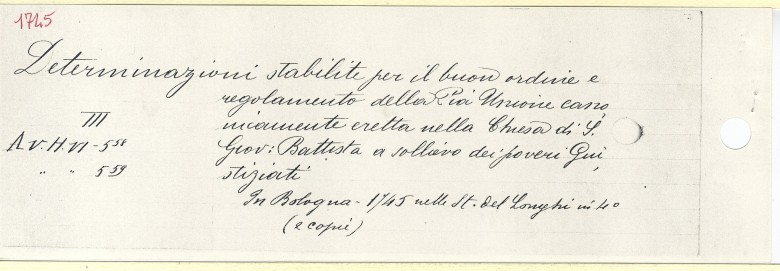 1745
Determinazioni stabilite per il buon ordine e
regolamento della Pia Unione cano,
nicamente eretta nella Chiesa di S.
Giov: Battista a sollievo dei poveri Giu,
stiziati
III
A.V.H.VI - 558
" " 559
In Bologna - 1745 nelle St. del Longhi in 4º
(2 copie)